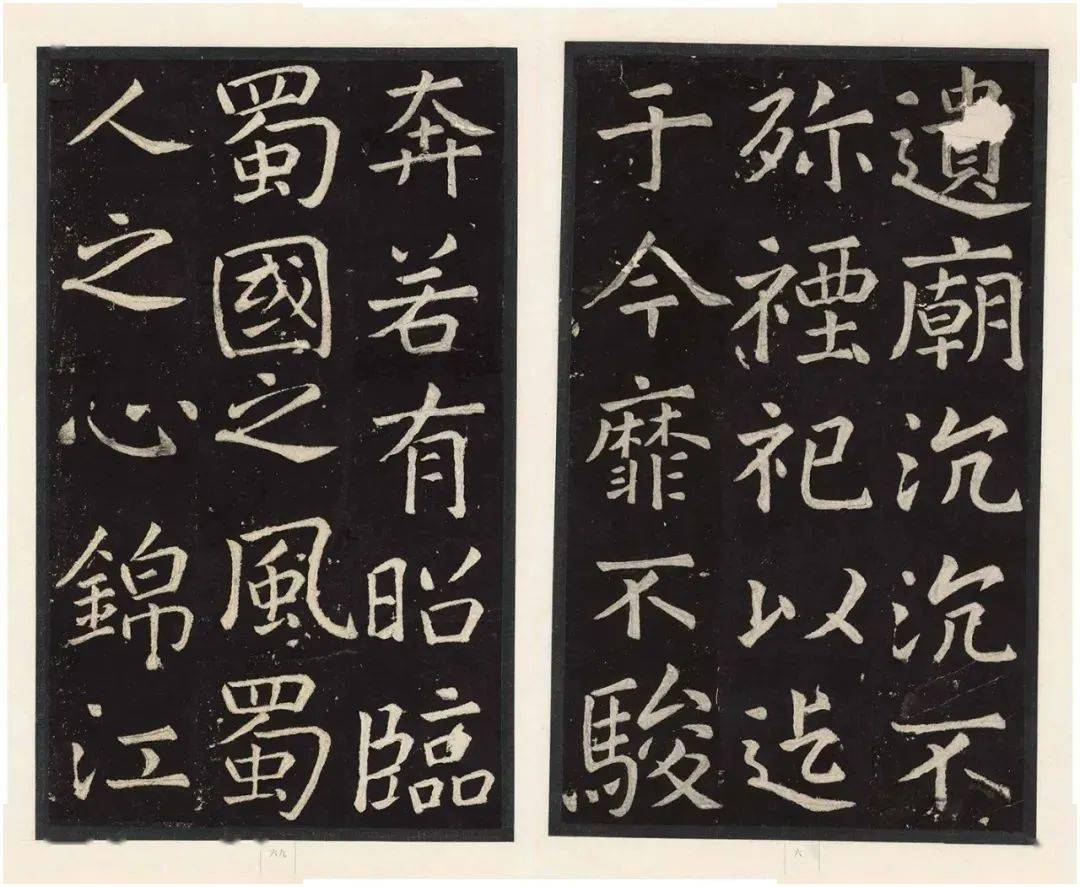 遺廟沉沉不
殄禋祀以迄
于今靡不駿
奔若有昭臨
蜀國之風蜀
人之心錦江
六
六九